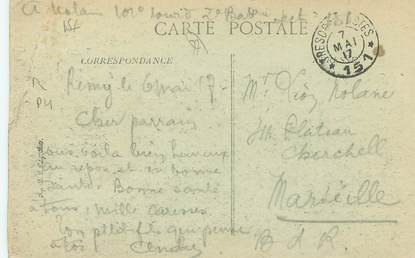 CARTE POSTALE
TRESOR ET POSTES
7
MAI
17
* 151 *
CORRESPONDANCE
Rémy le 6 mai 17 -
Cher parrain
Nous voila bien heureux
au repos et en bonne
santé. Bonne santé
à tous, mille caresses
Ton ptit fils qui pense
à toi
Mr Léon Rolane
Plateau
Cherchell
Marseille
B d R.